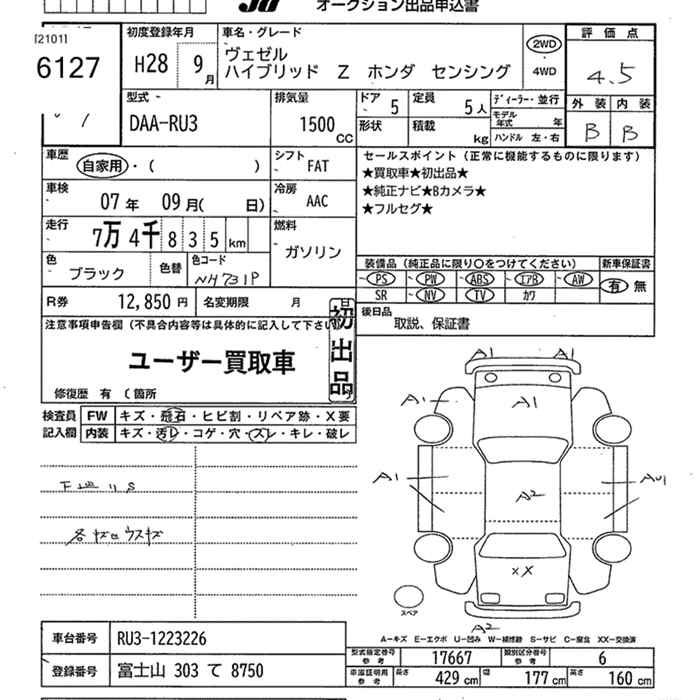 オークション出品申込書
[2101]
6127
初度登録年月
H28 9月
車名・グレード
ヴェゼル
ハイブリッド Z ホンダ センシング
2WD
4WD
評価点
4.5
外装 内装
B B
型式
DAA-RU3
排気量
1500 CC
ドア 5
定員 5人
形状
積載 kg
ディーラー・並行
モデル年式 年
ハンドル 左・右
車歴 自家用・( )
シフト FAT
車検 07年 09月( 日)
冷房 AAC
走行 7万4千835km
燃料 ガソリン
色 ブラック
色替
色コード NH731P
セールスポイント(正常に機能するものに限ります)
★買取車★初出品★
★純正ナビ★Bカメラ★
★フルセグ★
装備品(純正品に限り○をつけてください)
PS PW ABS エアB AW
SR NV TV カワ
新車保証書
有 無
R券 12,850円
名変期限 月 日
後日品 取説、保証書
注意事項申告欄(不具合内容等は具体的に記入して下さい
初出品
ユーザー買取車
修復歴 有 (箇所
検査員記入欄
FW キズ・飛石・ヒビ割・リペア跡・X要
内装 キズ・汚レ・コゲ・穴・スレ・キレ・破レ
各キズ ウスキズ
A1 A1
A1 A1 A1
A1 A2 AU1
XX
スペア
A2
A-キズ E-エクボ U-凹み W-補修跡 S-サビ C-腐食 XX-交換済
車台番号 RU3-1223226
登録番号 富士山 303 て 8750
型式指定番号 参考 17667
類別区分番号 参考 6
車庫証明用 参考
長さ 429 cm 幅 177 cm 高さ 160 cm